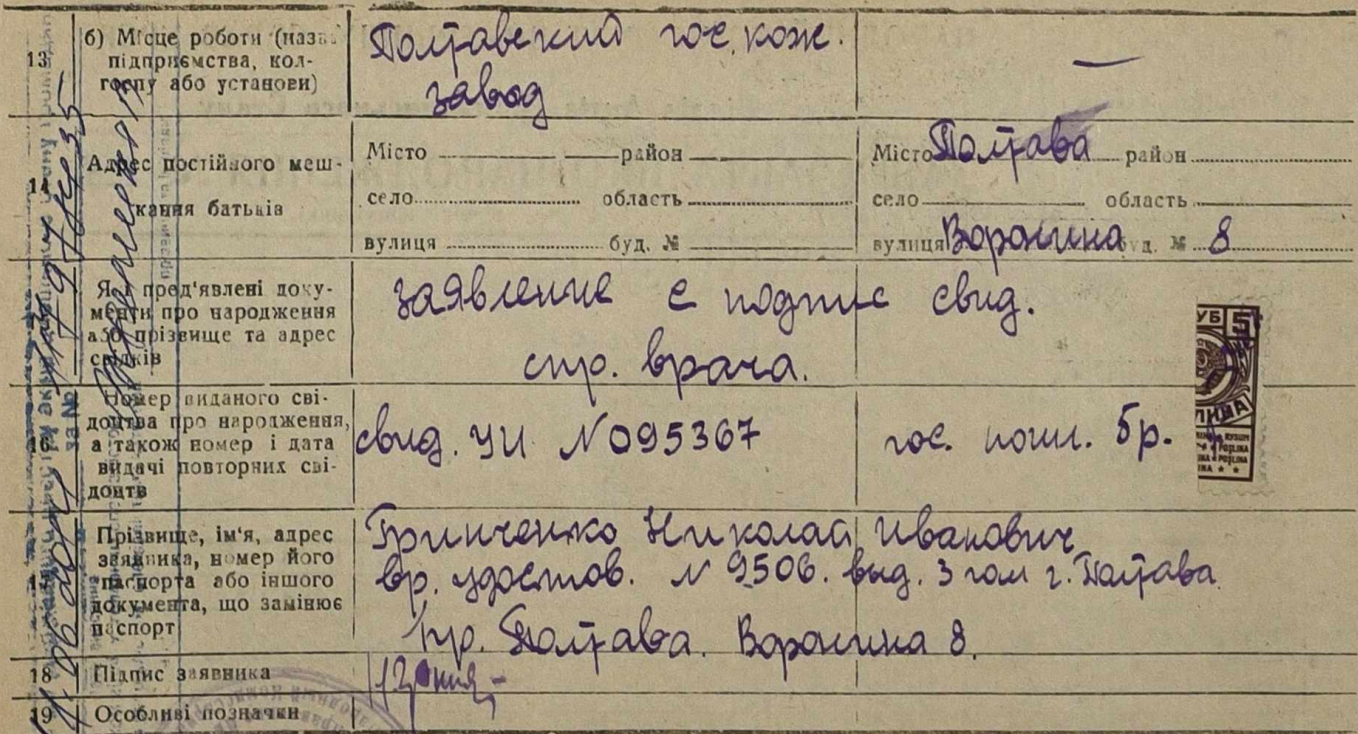 13
б) Місце роботи (назва
підприємства, кол-
госпу або установи)
Полтавский гос. кож.
завод
—
14
Адрес постійного меш-
кання батьків
Місто район
село область
вулиця буд. №
Місто Полтава район
село область
вулиця Воронина буд. № 8
Як пред'явлені доку-
менти про народження
або прізвище та адрес
свідків
заявление с подпис свид.
спр. врача.
16
Номер виданого сві-
доцтва про народження,
а також номер і дата
видачі повторних сві-
доцтв
свид. УИ N 095367
гос. пошл. 5р.
Прізвище, ім'я, адрес
заявника, номер його
паспорта або іншого
документа, що замінює
паспорт
Гринченко Николай Иванович
вр. удостов. N 9506. выд. 3 гом г. Полтава
пр. Полтава. Воронина 8.
18
Підпис заявника
19
Особливі позначки
за №